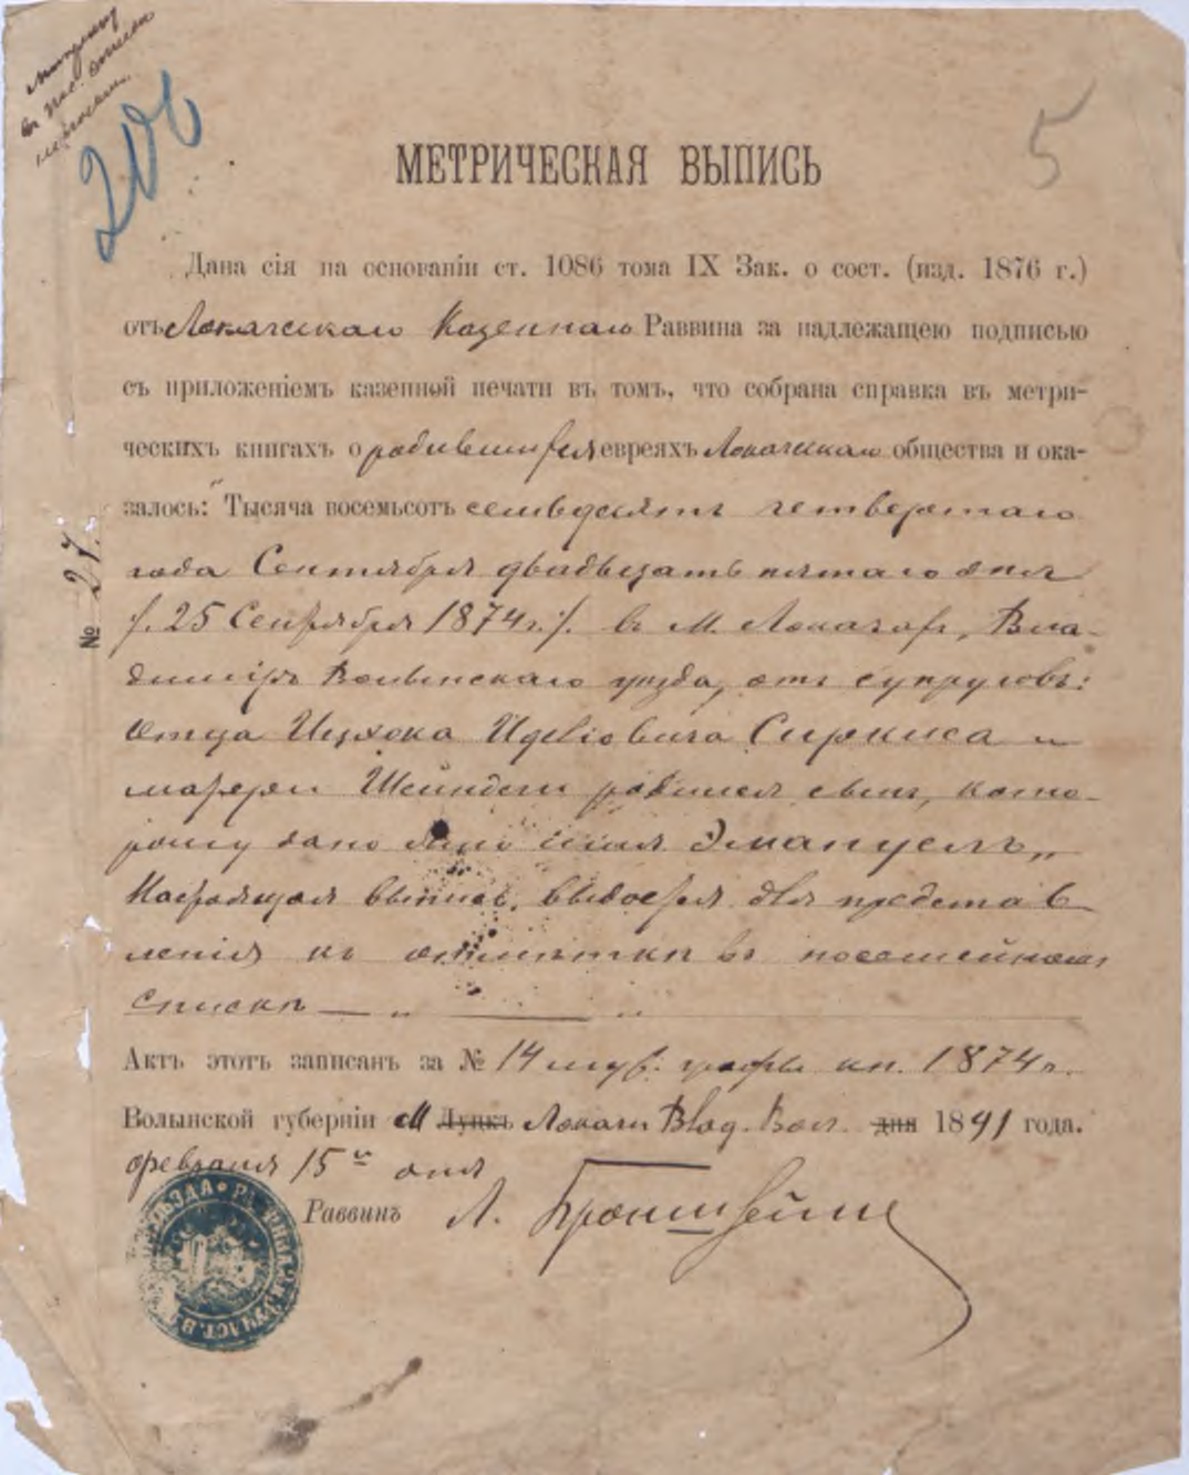 метрику
въ пос. списки
200
5
МЕТРИЧЕСКАЯ ВЫПИСЬ
Дана сія на основаніи ст. 1086 тома IX Зак. о сост. (изд. 1876 г.)
отъ Локачскаго Казеннаго Раввина за надлежащею подписью
съ приложеніемъ казенной печати въ томъ, что собрана справка въ метри-
ческихъ книгахъ о родившихся евреяхъ Локачскаго общества и ока-
залось: "Тысяча восемьсотъ семьдесятъ четвертаго
года Сентября двадцать пятаго дня
/. 25 Сентября 1874 г./. въ М. Локачахъ, Вла-
диміръ Волынскаго уѣзда, отъ супруговъ:
Отца Ицхока Иделіовича Сиркиса и
матери Шейндели родился сынъ, кото-
рому дано было имя Эмануель„
Настоящая выпись выдается для представ
ленія къ отмѣткѣ въ посемейномъ
спискѣ — „ — „
Актъ этотъ записанъ за № 14 муж: графы кн. 1874 г.
Волынской губерніи М Луцкъ Локачи Влад. Вол. дня 1891 года.
февраля 15го дня
Раввинъ Л. Бронштейнъ
№ 27.